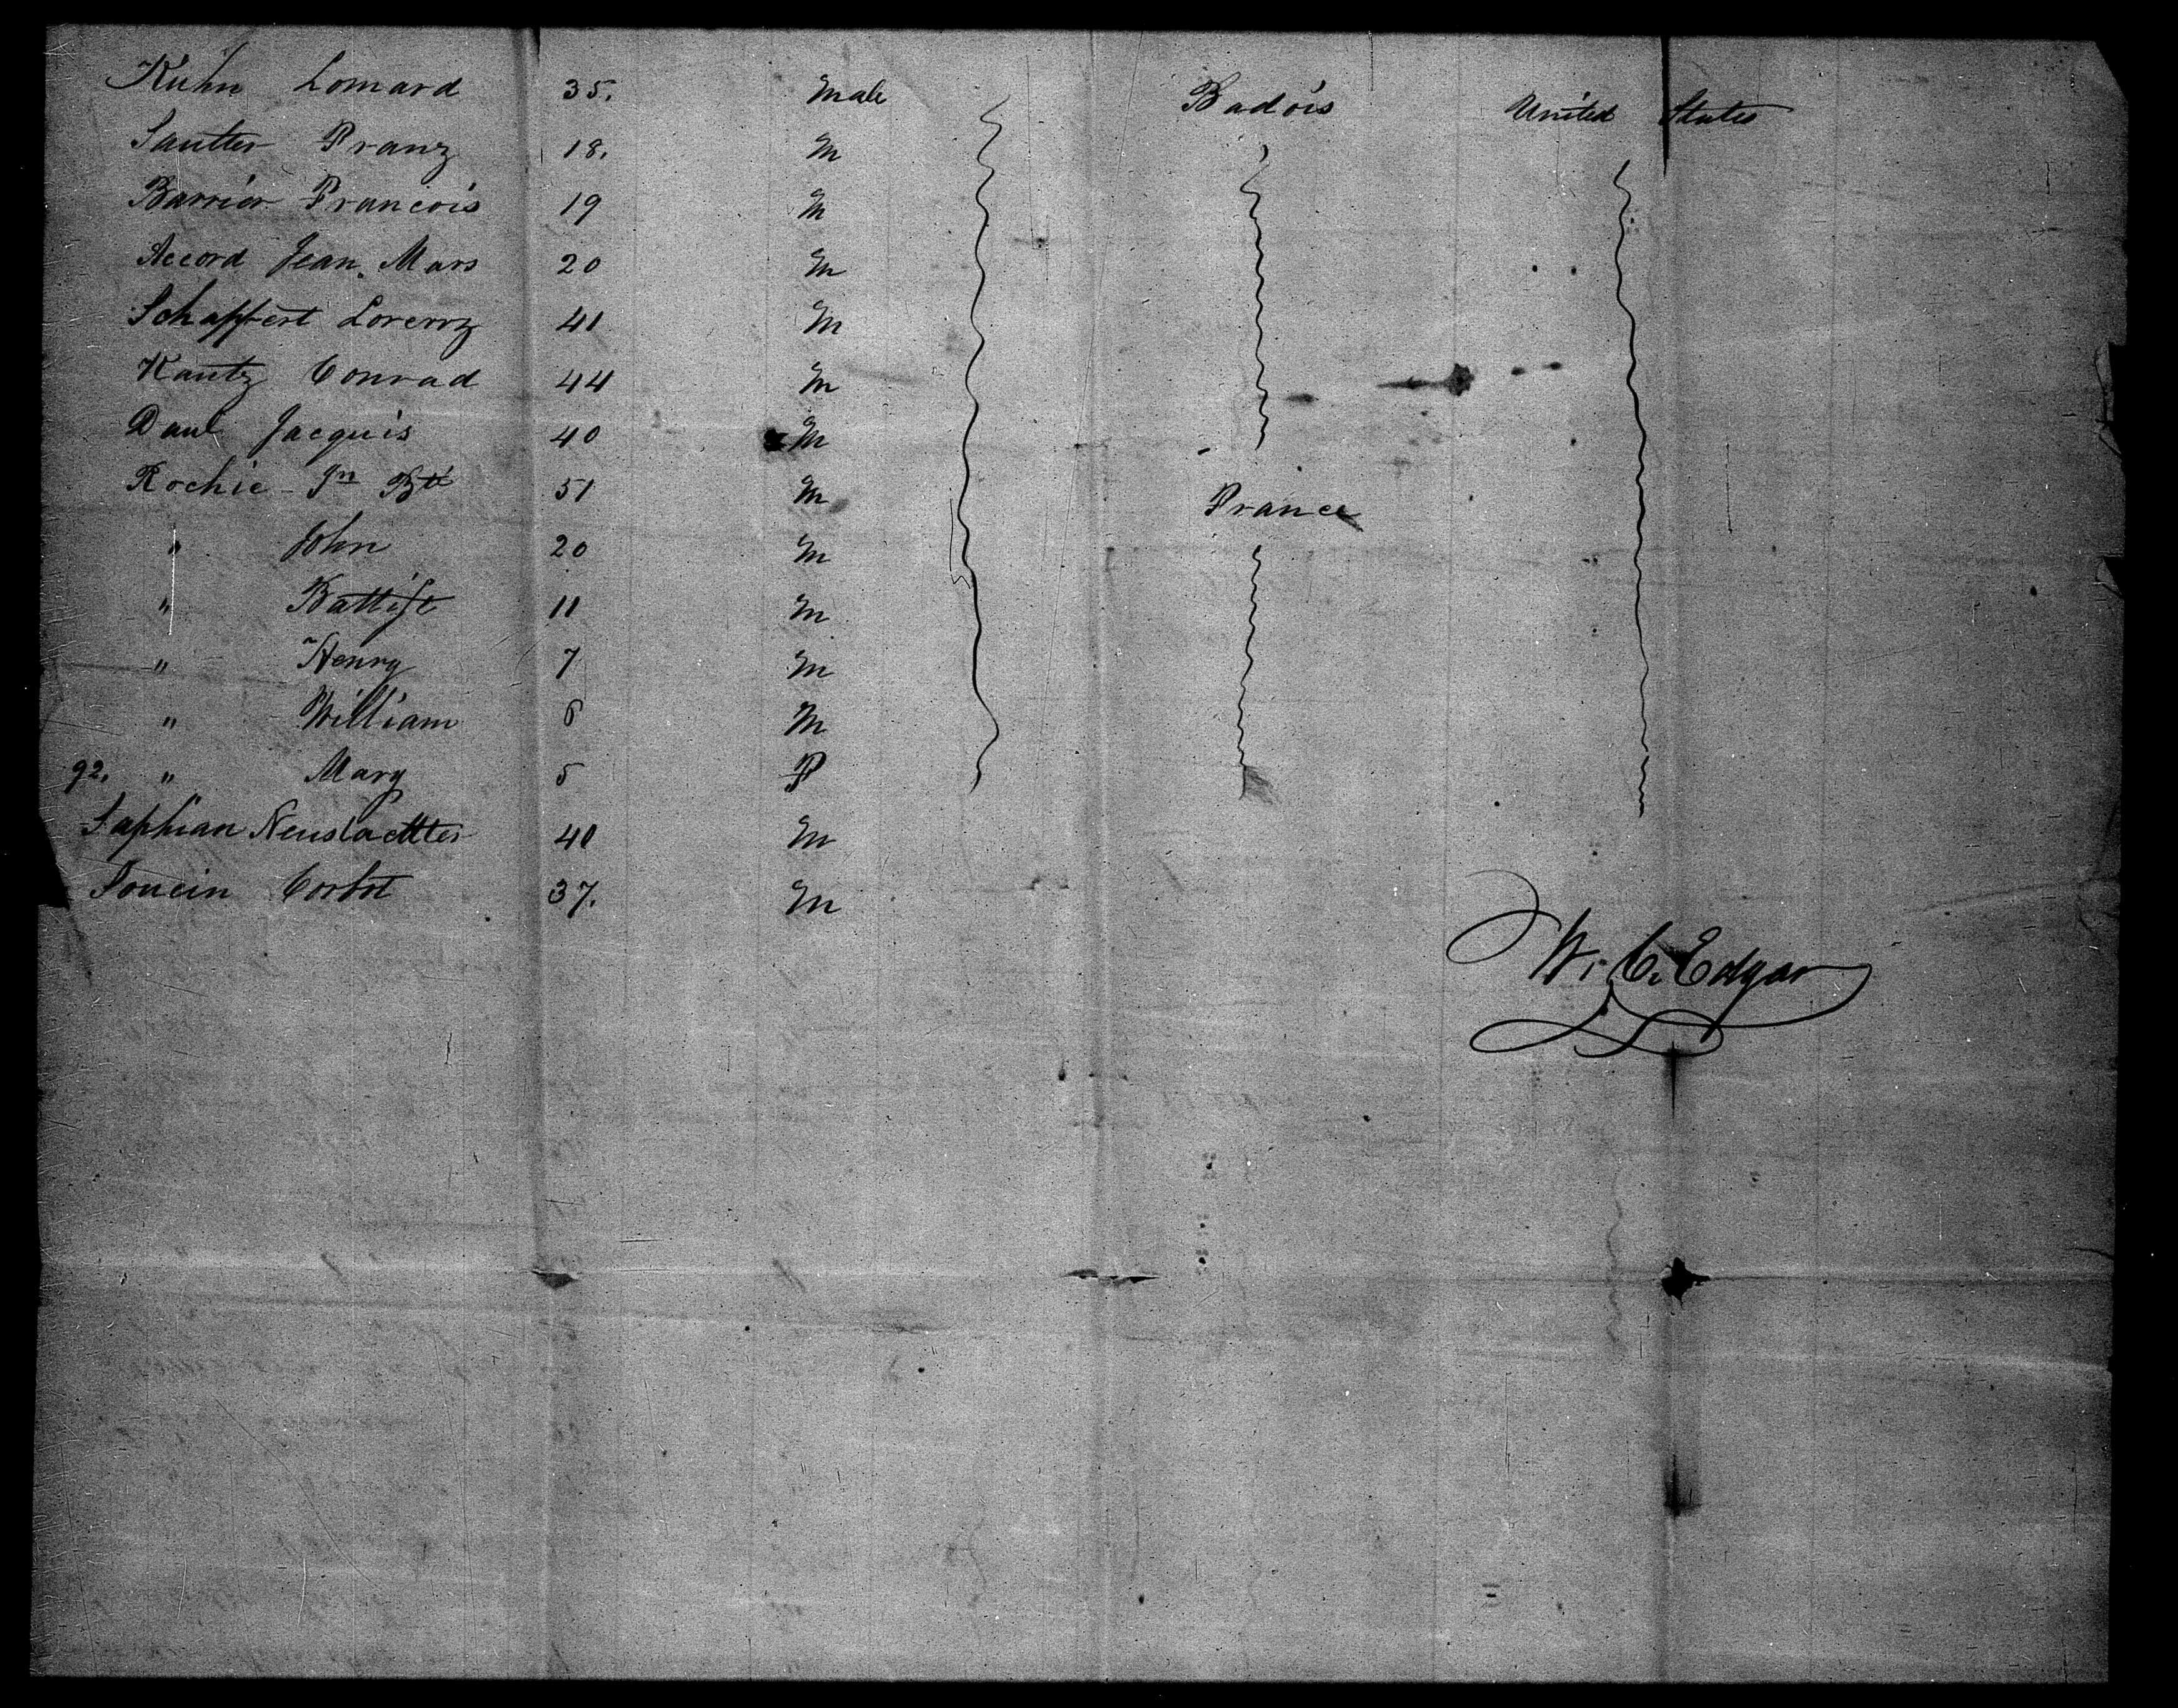 Kuhn Lomard 35. Male Badois United States
Sautter Franz 18. M
Barrior Francois 19 M
Accord Jean. Mars 20 M
Schaffert Lorenz 41 M
Kautz Conrad 44 M
Daul Jacquis 40 M
Rochie - Jn Bte 51 M France
" John 20 M
" Battist 11 M
" Henry 7 M
" William 6 M
92. " Mary 5 F
Saphian Neuslaettter 40 M
Toucin Corbot 37. M
W. C. Edgar